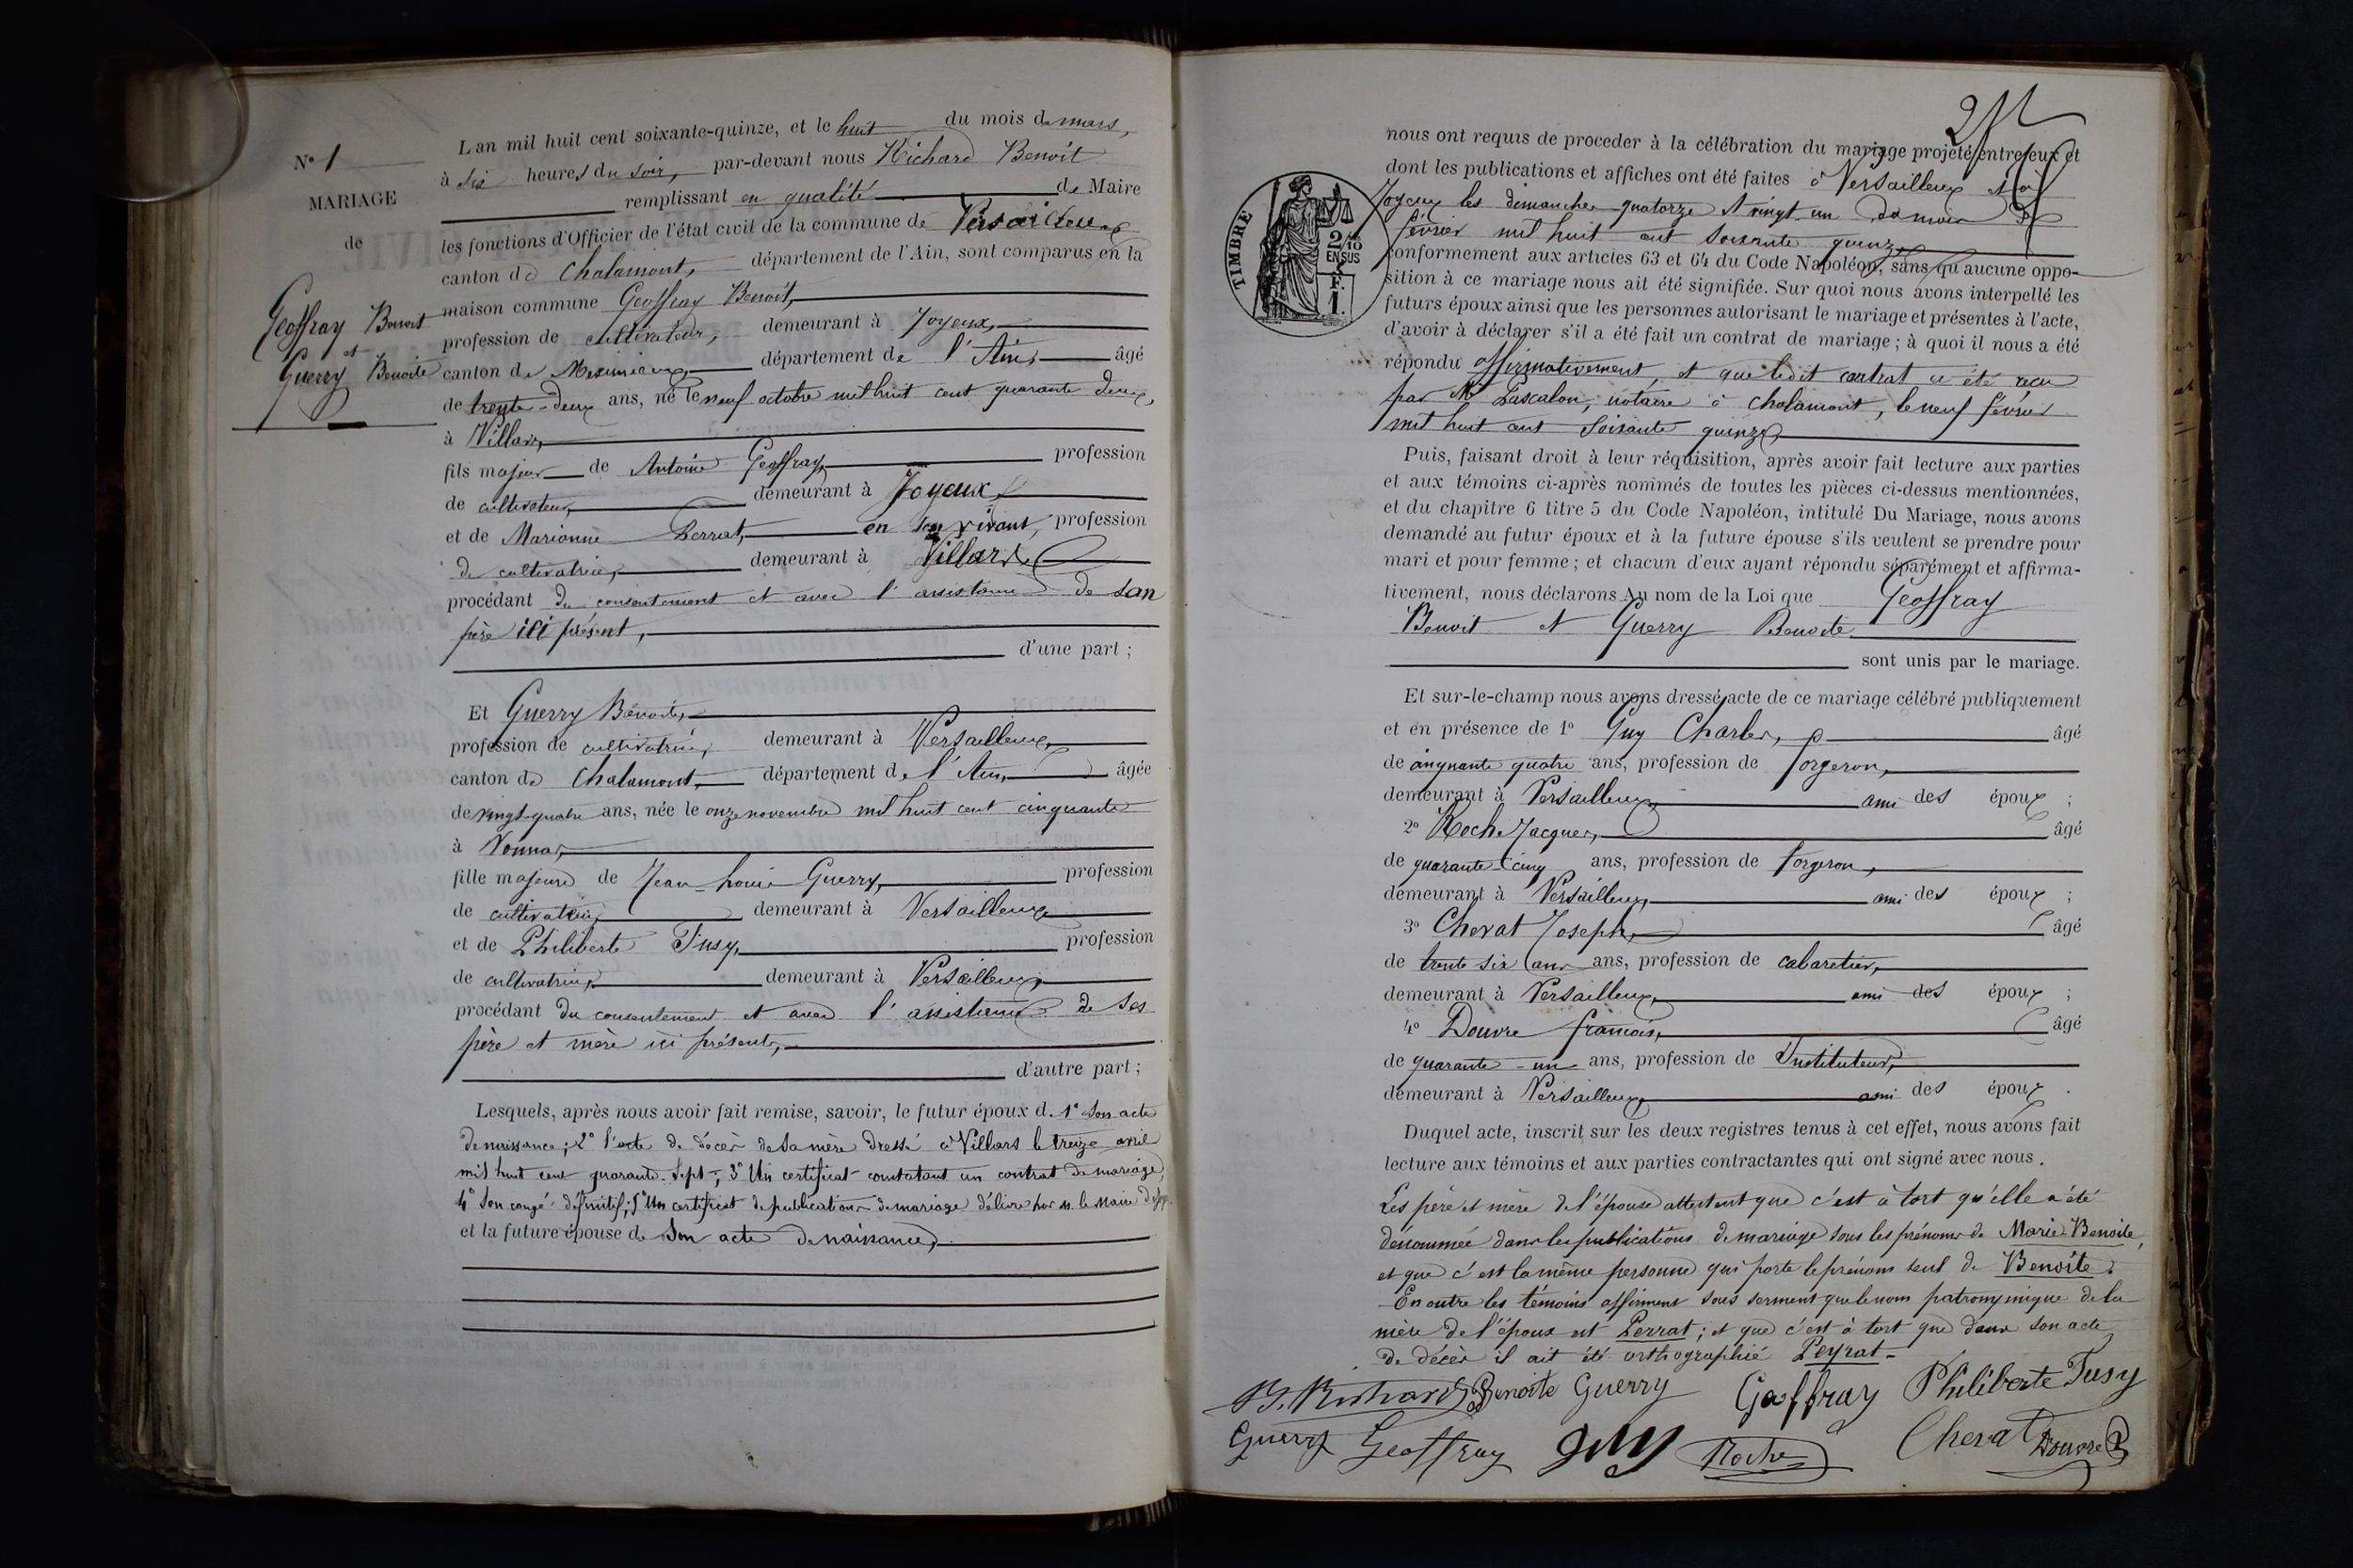 N° 1
MARIAGE
de
Geoffray Benoit
et
Guerry Benoite
L'an mil huit cent soixante-quinze, et le huit du mois de mars,
à six heures du soir, par-devant nous Richard Benoit
remplissant en qualité de Maire
les fonctions d'Officier de l'état civil de la commune de Versailleux
canton de Chalamont, département de l'Ain, sont comparus en la
maison commune Geoffray Benoit,
profession de cultivateur, demeurant à Joyeux,
canton de Meximieux, département de l'Ain, âgé
de trente-deux ans, né le neuf octobre mil huit cent quarante deux,
à Villars,
fils majeur de Antoine Geoffray, profession
de cultivateur, demeurant à Joyeux,
et de Marianne Perrat, en son vivant, profession
de cultivatrice, demeurant à Villars
procédant du consentement et avec l'assistance de son
père ici présent,
d'une part ;
Et Guerry Benoite,
profession de cultivatrice, demeurant à Versailleux,
canton de Chalamont, département de l'Ain, âgée
de vingt-quatre ans, née le onze novembre mil huit cent cinquante
à Vonnas,
fille majeure de Jean-Louis Guerry, profession
de cultivateur, demeurant à Versailleux
et de Philiberte Tusy, profession
de cultivatrice, demeurant à Versailleux,
procédant du consentement et avec l'assistance de ses
père et mère ici présents,
d'autre part ;
Lesquels, après nous avoir fait remise, savoir, le futur époux d. 1° Son acte
de naissance ; 2° l'acte de décès de sa mère dressé à Villars le treize avril
mil huit cent quarante-sept ; 3° Un certificat constatant un contrat de mariage,
4° Son congé définitif ; 5° Un certificat de publications de mariage délivré par M. le Maire de
et la future épouse de Son acte de naissance,
211
TIMBRE
2/10
EN SUS
F.
1.
nous ont requis de proceder à la célébration du mariage projeté entre eux et
dont les publications et affiches ont été faites à Versailleux et à
Joyeux les dimanches quatorze et vingt-un du mois de
février mil huit cent soixante quinze
conformement aux articles 63 et 64 du Code Napoléon, sans qu'aucune oppo-
sition à ce mariage nous ait été signifiée. Sur quoi nous avons interpellé les
futurs époux ainsi que les personnes autorisant le mariage et présentes à l'acte,
d'avoir à déclarer s'il a été fait un contrat de mariage ; à quoi il nous a été
répondu affirmativement, et que ledit contrat a été reçu
par Me Lascalon, notaire à Chalamont, le neuf février
mil huit cent soixante quinze
Puis, faisant droit à leur réquisition, après avoir fait lecture aux parties
et aux témoins ci-après nommés de toutes les pièces ci-dessus mentionnées,
et du chapitre 6 titre 5 du Code Napoléon, intitulé Du Mariage, nous avons
demandé au futur époux et à la future épouse s'ils veulent se prendre pour
mari et pour femme ; et chacun d'eux ayant répondu séparément et affirma-
tivement, nous déclarons Au nom de la Loi que Geoffray
Benoit et Guerry Benoite
sont unis par le mariage.
Et sur-le-champ nous avons dressé acte de ce mariage célébré publiquement
et en présence de 1° Guy Charles, âgé
de cinquante quatre ans, profession de forgeron,
demeurant à Versailleux, ami des époux ;
2° Roche Jacques, âgé
de quarante-cinq ans, profession de forgeron,
demeurant à Versailleux, ami des époux ;
3° Cherat Joseph, âgé
de trente six ans ans, profession de cabaretier,
demeurant à Versailleux, ami des époux ;
4° Douvre françois, âgé
de quarante-un ans, profession de Instituteur,
demeurant à Versailleux, ami des époux .
Duquel acte, inscrit sur les deux registres tenus à cet effet, nous avons fait
lecture aux témoins et aux parties contractantes qui ont signé avec nous.
Les père et mère de l'épouse attestent que c'est à tort qu'elle a été
dénommée dans les publications de mariage sous les prénoms de Marie-Benoite,
et que c'est la même personne qui porte le prénom seul de Benoite.
En outre les témoins affirment sous serment que le nom patronymique de la
mère de l'époux est Perrat ; et que c'est à tort que dans son acte
de décès il ait été orthographié Peyrat.
B. Richard Benoite Guerry Geoffray Philiberte Tusy
Guerry Geoffray Guy Roche Cherat Douvre